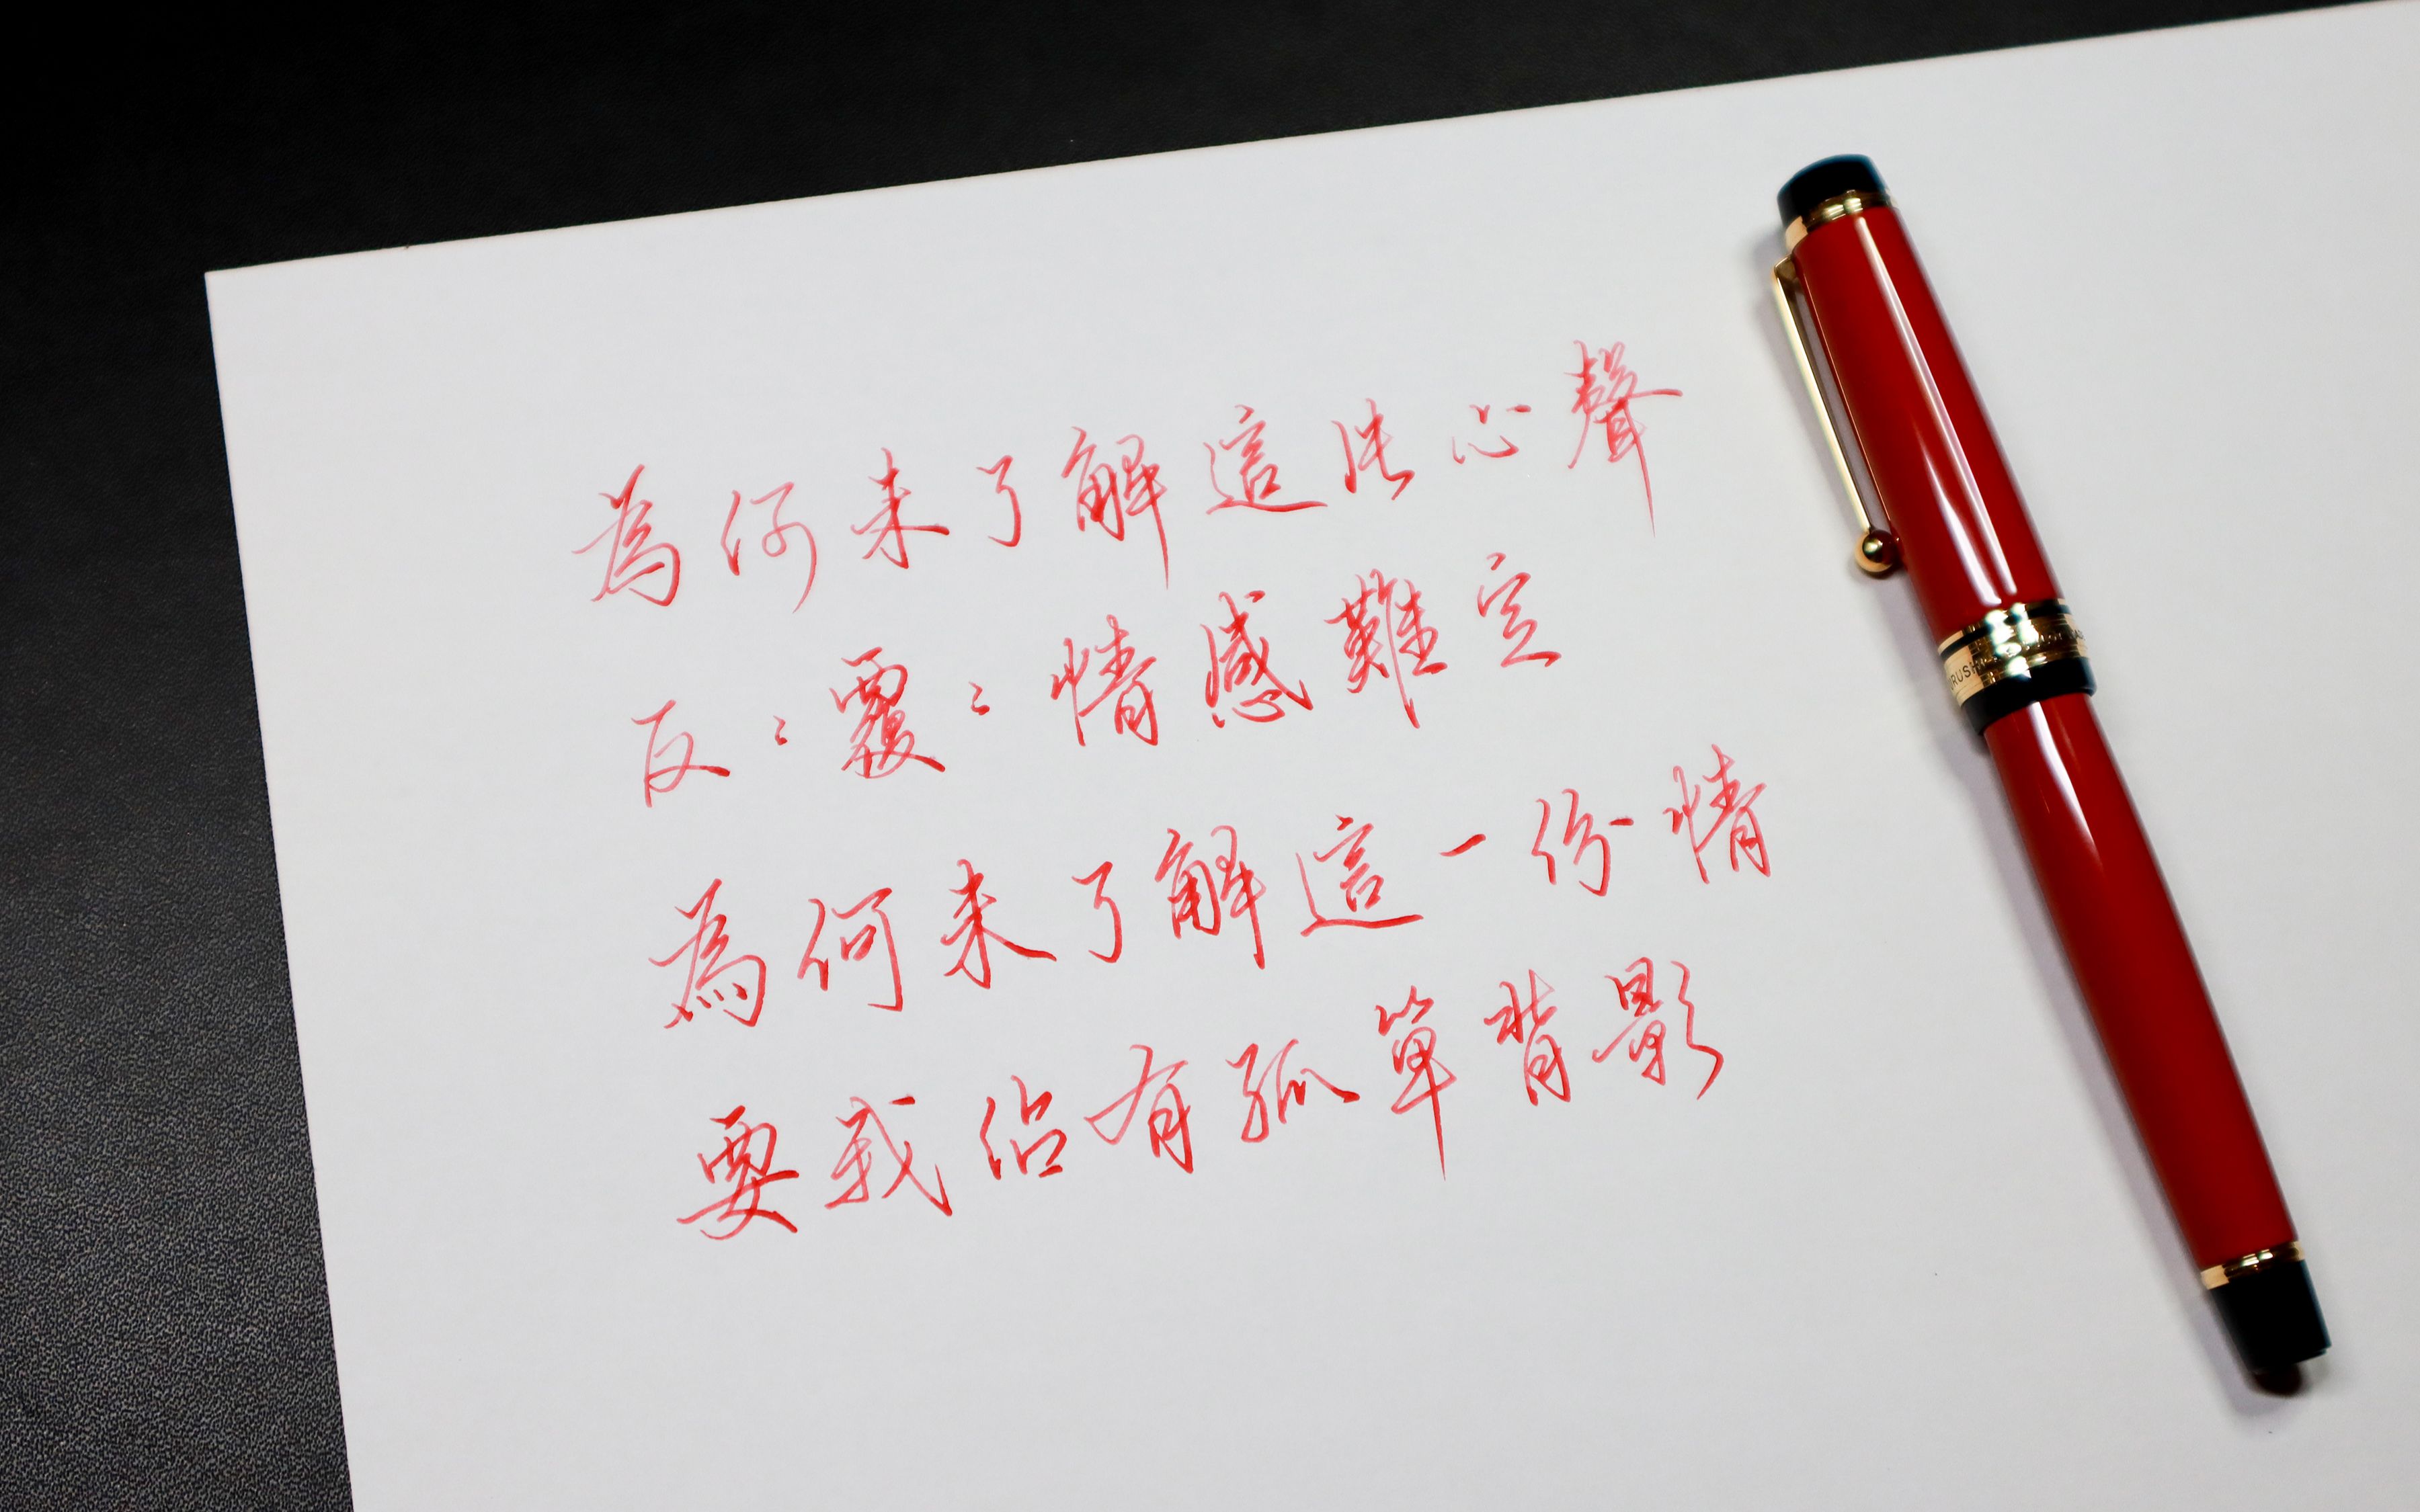 為何未了解這些心聲
反〻覆〻情感難定
為何未了解這一份情
要我佔有孤單背影